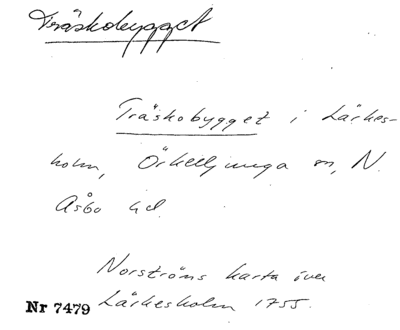 Träskobygget
Träskobygget i Lärkes-
holm, Örkelljunga sn, N.
Åsbo hd.
Norströms karta över
Nr 7479 Lärkesholm 1755.